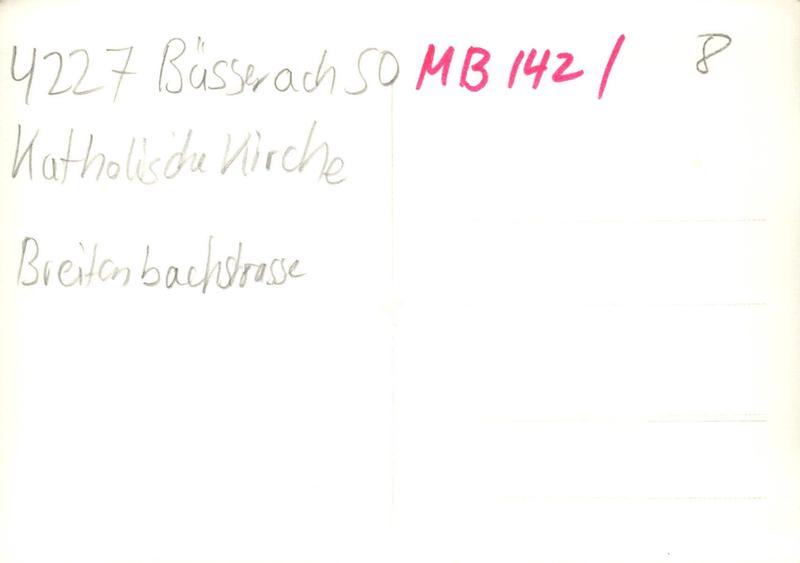 4227 Büsserach SO MB 142 / 8
Katholische Kirche
Breitenbachstrasse